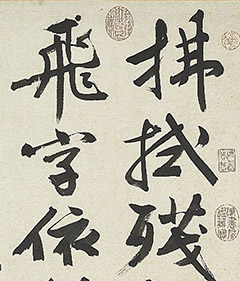 拂拭殘
飛字依